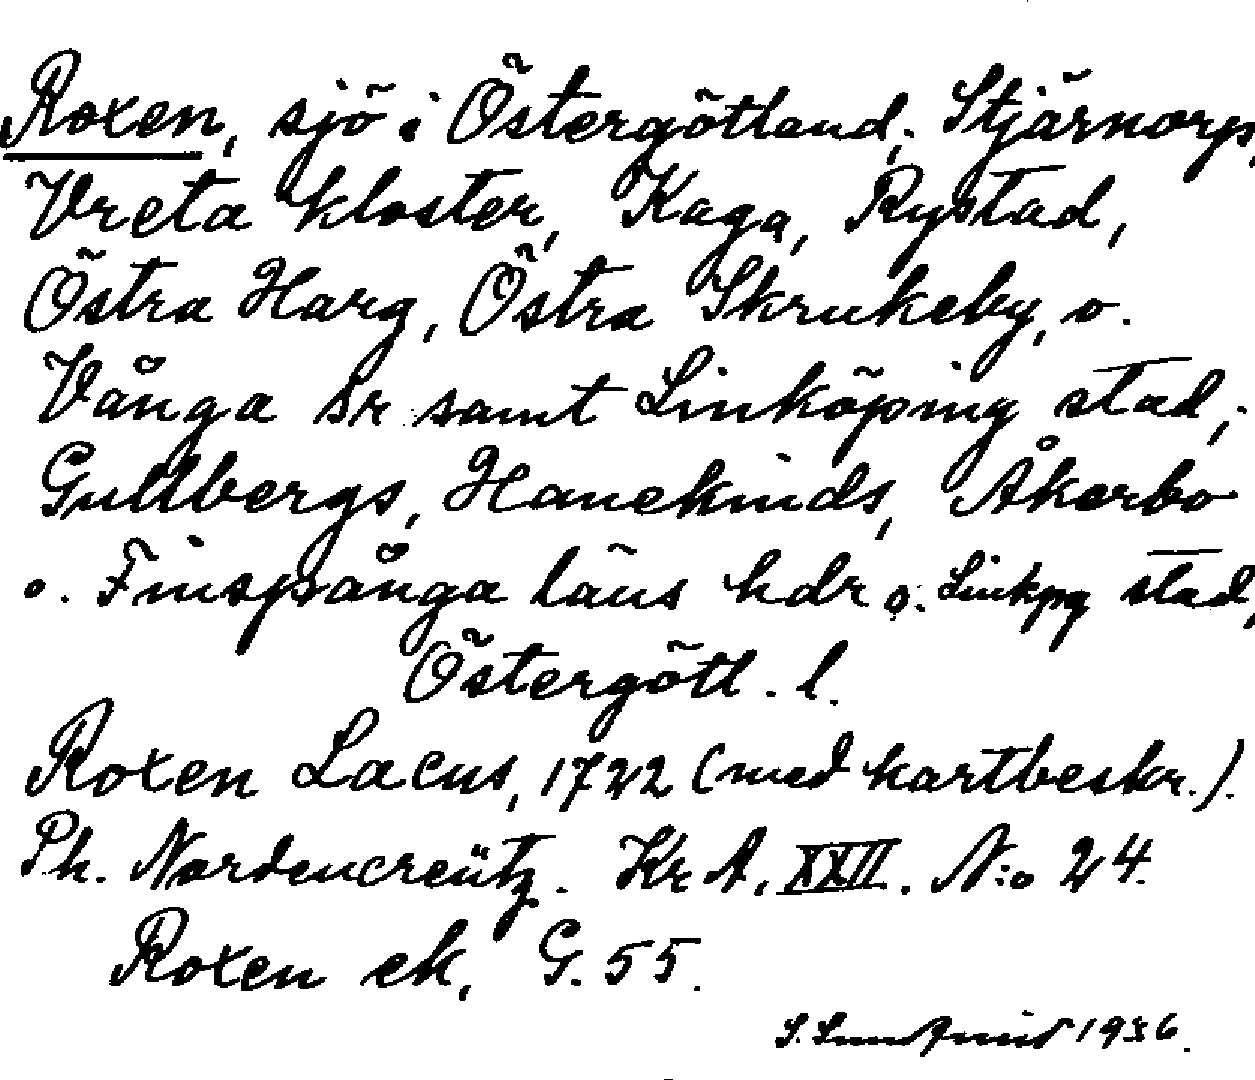 Roxen, sjö i Östergötland; Stjärnorps,
Vreta kloster, Kaga, Rystad,
Östra Harg, Östra Skrukeby, o.
Vånga sr samt Linköping stad;
Gullbergs, Hanekinds, Åkerbo
o. Finspånga läns hdr o. Linkpg stad,
Östergötl. l.
Roxen Lacus, 1722 (med kartbeskr.).
Ph. Nordencreütz. Kr A. XXII. N:o 24.
Roxen ek, G. 55.
S. Lundqvist 1936.